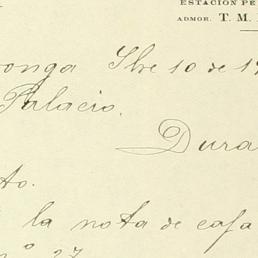 ESTACION PE
ADMOR. T. M.
onga Sbre 10 de 19
Palacio.
Dura
to.
la nota de caja
nº 27